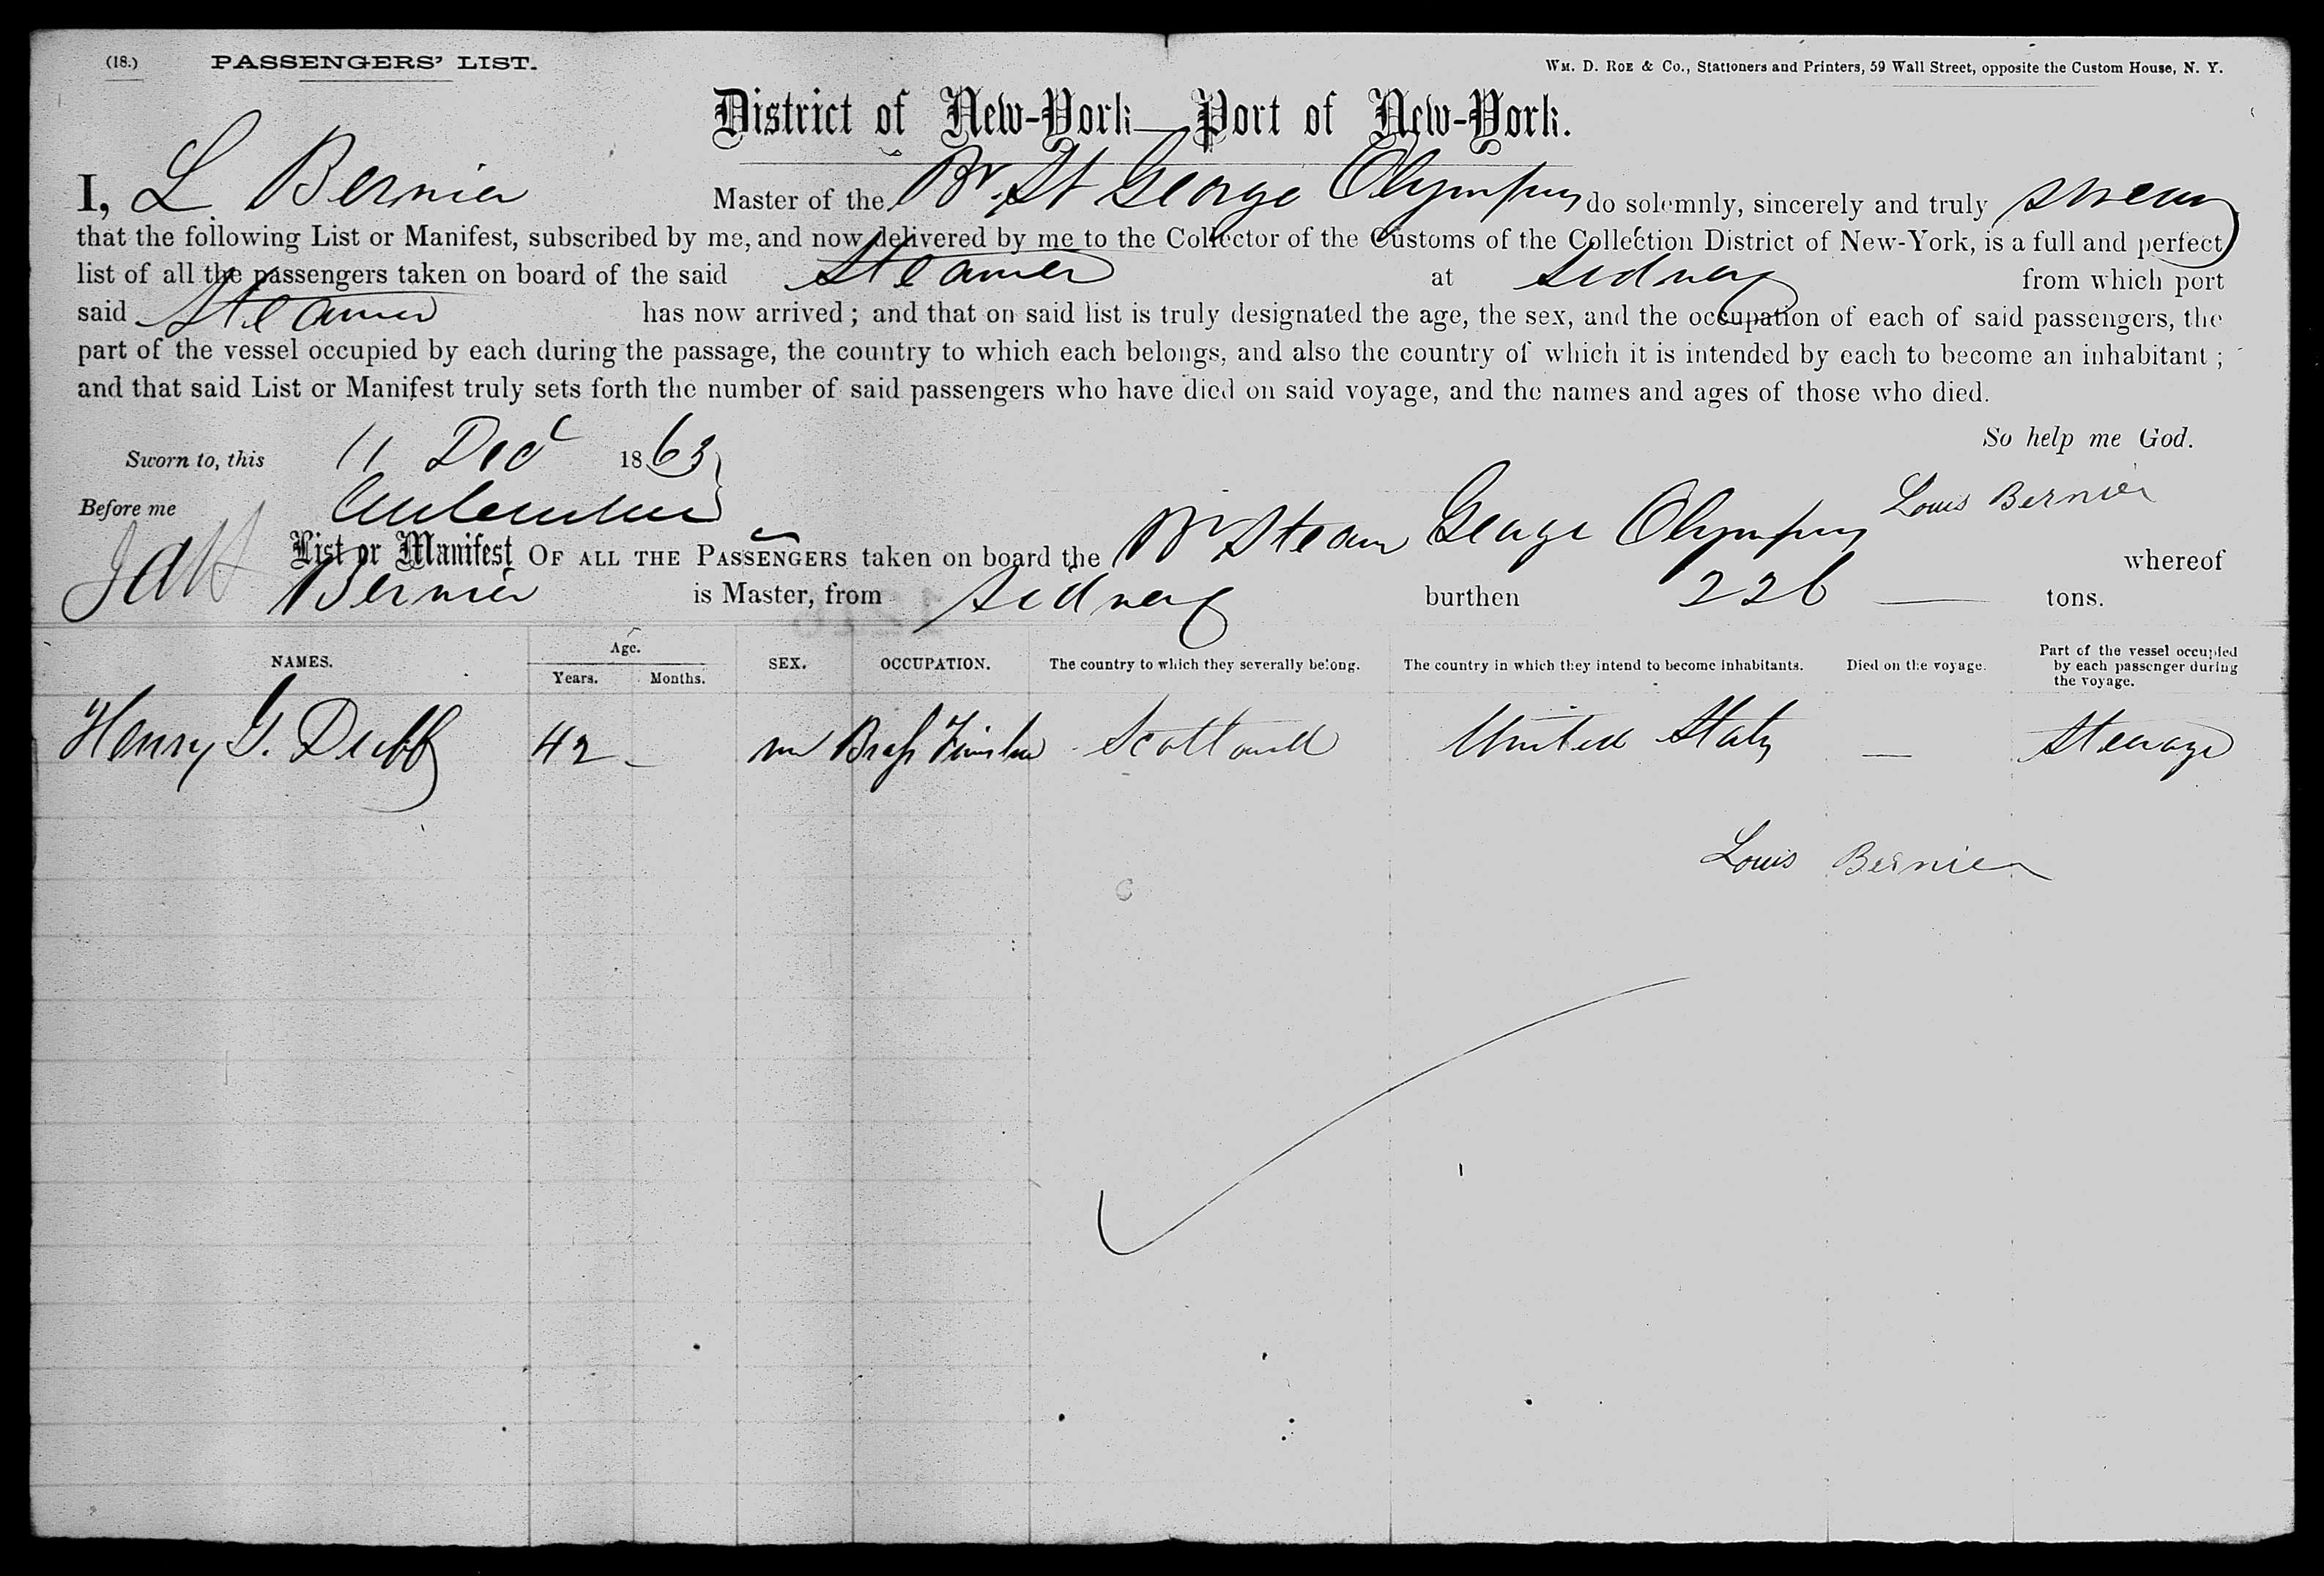 (18.) PASSENGERS' LIST. Wm. D. Roe & Co., Stationers and Printers, 59 Wall Street, opposite the Custom House, N. Y.
District of New-York—Port of New-York.
I, L Bernier Master of the Br. St George Olympus do solemnly, sincerely and truly swear
that the following List or Manifest, subscribed by me, and now delivered by me to the Collector of the Customs of the Collection District of New-York, is a full and perfect
list of all the passengers taken on board of the said Steamer at Sidney from which port
said Steamer has now arrived; and that on said list is truly designated the age, the sex, and the occupation of each of said passengers, the
part of the vessel occupied by each during the passage, the country to which each belongs, and also the country of which it is intended by each to become an inhabitant;
and that said List or Manifest truly sets forth the number of said passengers who have died on said voyage, and the names and ages of those who died.
So help me God.
Sworn to, this 11 Dec 1863
Before me Louis Bernier
List or Manifest OF ALL THE PASSENGERS taken on board the Br Steam George Olympus whereof
Bernier is Master, from Sidney burthen 226 — tons.
NAMES. Age. Years. Months. SEX. OCCUPATION. The country to which they severally belong. The country in which they intend to become inhabitants. Died on the voyage. Part of the vessel occupied by each passenger during the voyage.
Henry G. Duff 42 - m Brass Finisher Scotland United States — Steerage
Louis Bernier